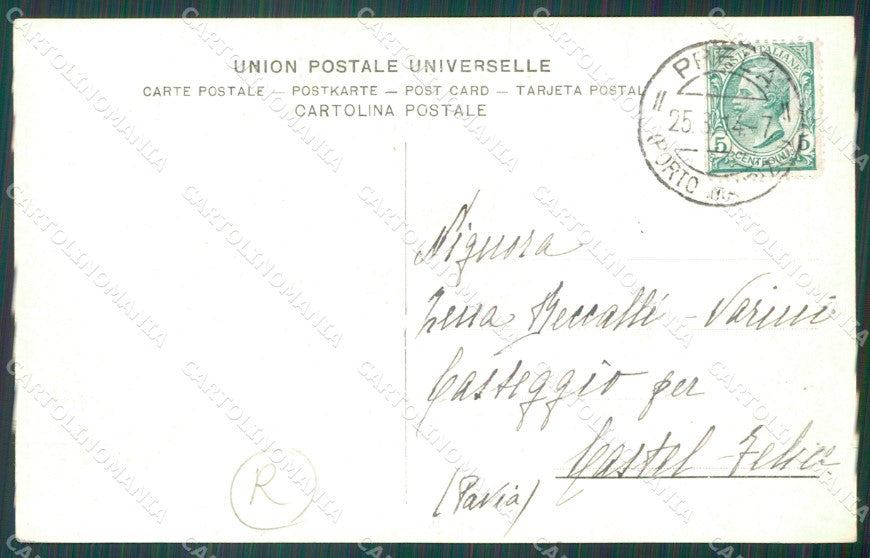 UNION POSTALE UNIVERSELLE
CARTE POSTALE — POSTKARTE — POST CARD — TARJETA POSTAL
CARTOLINA POSTALE
25.8
4-7
PORTO
5 5
Signora
Beccalli - Varini
Casteggio per
Castel-Felice
(Pavia)
R
CARTOLINOMANIA